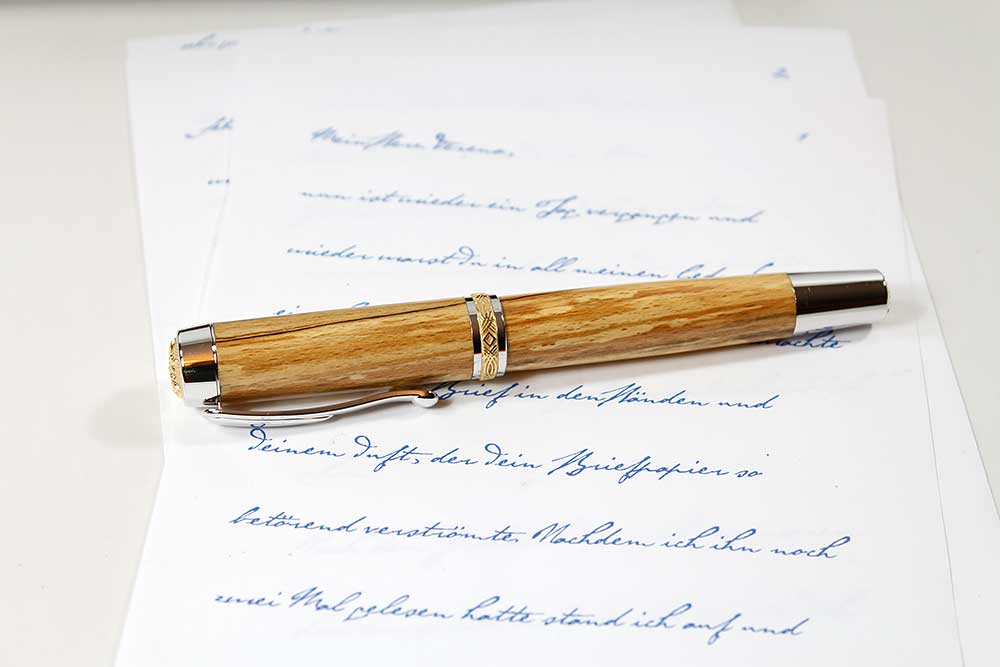 2
1
Mein Herz Verena,
nun ist wieder ein Tag vergangen und
wieder warst Du in all meinen
machte
Brief in den Händen und
Deinem Duft, der Dein Briefpapier so
betörend verströmte. Nachdem ich ihn noch
zwei Mal gelesen hatte stand ich auf und